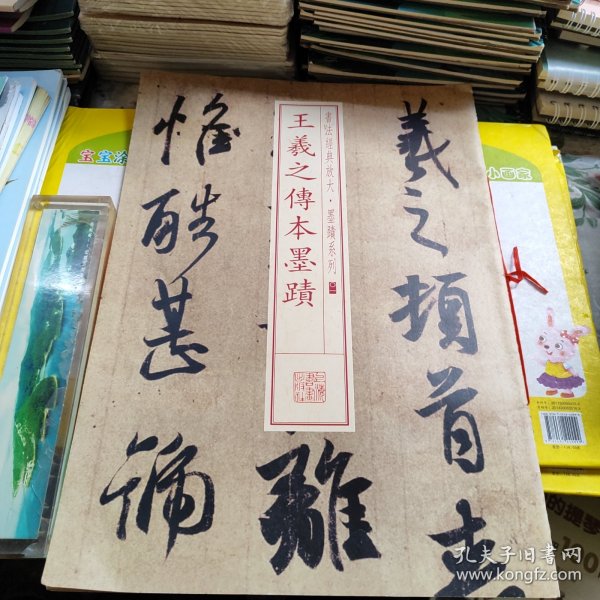 羲之頓首喪
離
惟酷甚
號
書法經典放大·墨蹟系列
王羲之傳本墨蹟
上海書畫出版社
宝宝涂
小画家
的提琴
孔夫子旧书网
www.kongfz.com